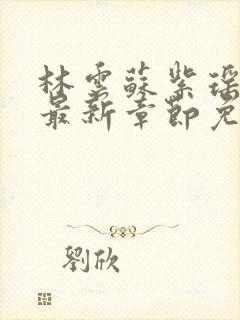 林雲蘇紫瑶
最新章節免
劉欣